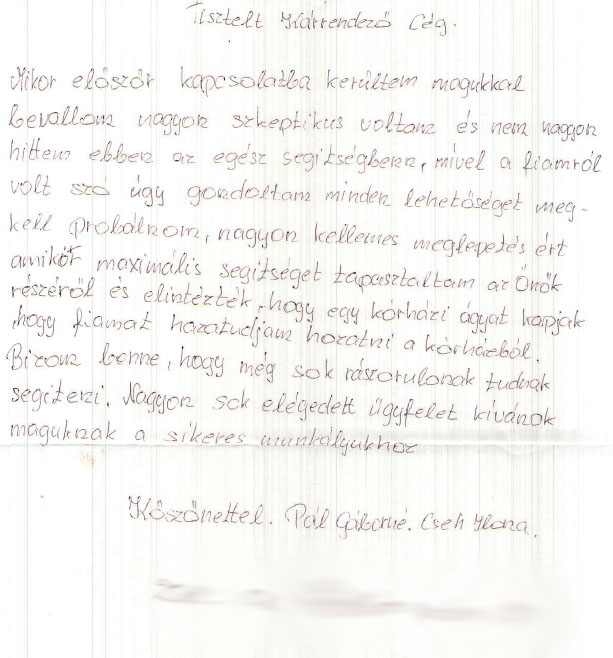 Tisztelt Kárrendező Cég.
Mikor először kapcsolatba kerültem magukkal
bevallom nagyon szkeptikus voltam és nem nagyon
hittem ebben az egész segitségben, mivel a fiamról
volt szó úgy gondoltam minden lehetőséget meg-
kell probálnom, nagyon kellemes meglepetés ért
amikor maximális segitséget tapasztaltam az Önök
részéről és elintézték, hogy egy kórházi ágyat kapjak
hogy fiamat hazatudjam hozatni a kórházból.
Bizom benne, hogy még sok rászorulonak tudnak
segiteni. Nagyon sok elégedett ügyfelet kívánok
maguknak a sikeres munkájukhoz
Köszönettel. Pál Gáborné. Cseh Ilona.